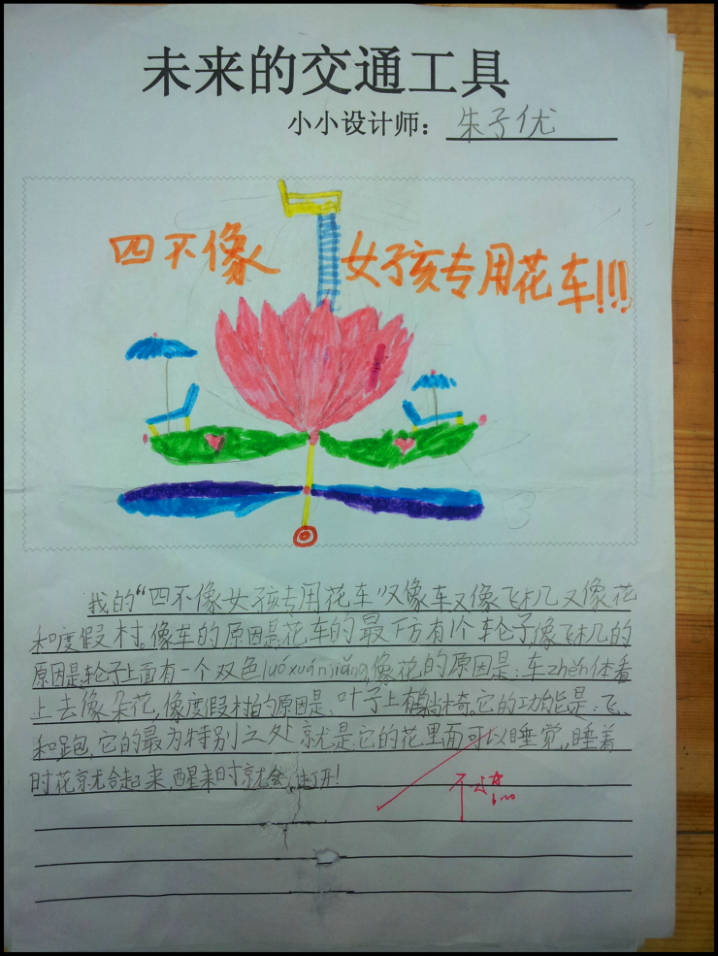 未来的交通工具
小小设计师：朱子优
四不像 女孩专用花车!!!
我的“四不像女孩专用花车”又像车又像飞机又像花
和度假村。像车的原因是花车的最下方有1个轮子,像飞机的
原因是轮子上面有一个双色luó xuán jiǎng,像花的原因是：车zhěn体看
上去像朵花,像度假村的原因是、叶子上有躺椅。它的功能是：飞、
和跑,它的最为特别之处就是它的花里面可以睡觉,睡着
时花就合起来,醒来时就会打开!